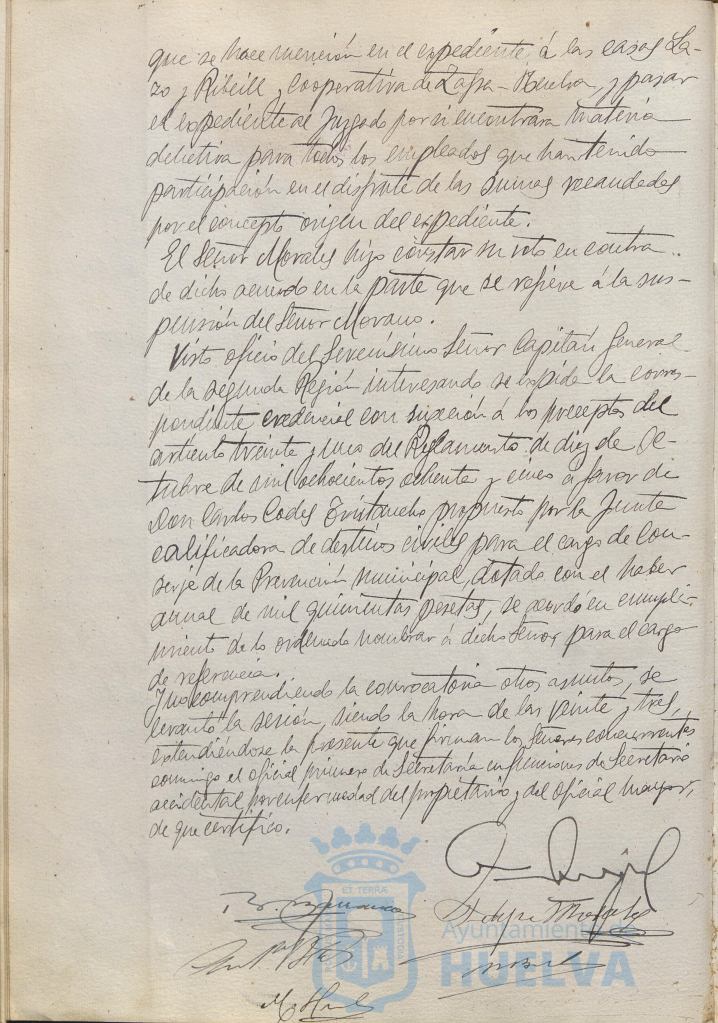 que se hace mención en el expediente, á las casas La-
zo y Ribeill y Cooperativa de Zafra-Huelva, y pasar
el expediente al Juzgado por si encontrara materia
delictiva para todos los empleados que han tenido
participación en el disfrute de las sumas recaudadas
por el concepto origen del expediente.
El Señor Morales hizo constar su voto en contra
de dicho acuerdo en la parte que se refiere á la sus-
pensión del Señor Morano.
Visto oficio del Serenísimo Señor Capitán General
de la segunda Región interesando se expida la corres-
pondiente credencial con sujeción á los preceptos del
artículo treinta y uno del Reglamento de diez de Oc-
tubre de mil ochocientos ochenta y cinco a favor de
Don Carlos Codes propuesto por la Junta
calificadora de destinos civiles para el cargo de Con-
serje de la Prevención Municipal, dotada con el haber
anual de mil quinientas pesetas, se acordó en cumpli-
miento de lo ordenado nombrar á dicho Señor para el cargo
de referencia.
Y no comprendiendo la convocatoria otros asuntos, se
levantó la sesión, siendo la hora de las veinte y tres,
extendiéndose la presente que firman los Señores concurrentes
conmigo el oficial primero de Secretaría en funciones de Secretario
accidental por enfermedad del propietario y del oficial mayor,
de que certifico.
ET TERRAE
Ayuntamiento de
HUELVA